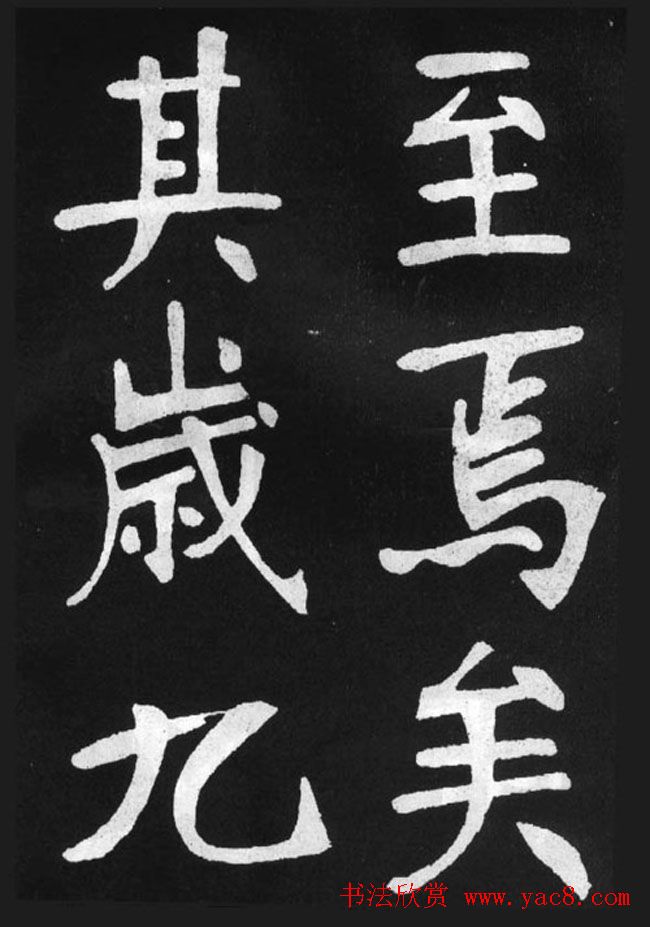 至焉矣
其歲九
书法欣赏 www.yac8.com